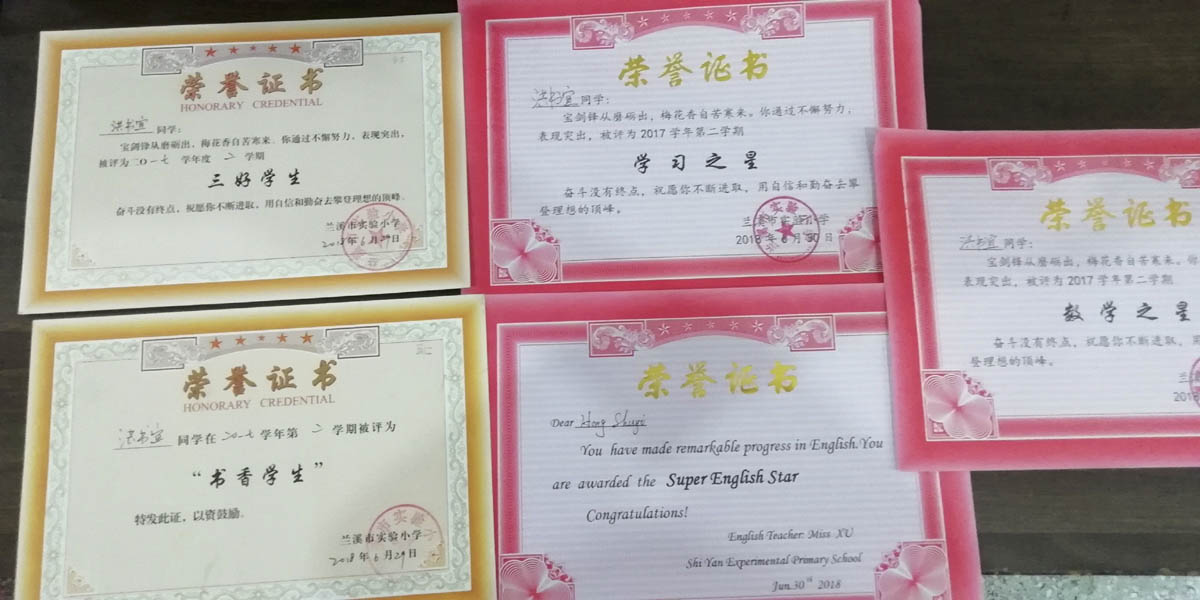 荣誉证书
HONORARY CREDENTIAL
洪书宜 同学:
宝剑锋从磨砺出，梅花香自苦寒来。你通过不懈努力，表现突出，
被评为二〇一七 学年度 二 学期
三好学生
奋斗没有终点，祝愿你不断进取，用自信和勤奋去攀登理想的顶峰。
兰溪市实验小学
2018年6月29日
荣誉证书
洪书宜 同学：
宝剑锋从磨砺出，梅花香自苦寒来。你通过不懈努力，
表现突出，被评为 2017 学年第二学期
学习之星
奋斗没有终点，祝愿你不断进取，用自信和勤奋去攀
登理想的顶峰。
兰溪市实验小学
2018 年 6 月 30 日
荣誉证书
洪书宜 同学：
宝剑锋从磨砺出，梅花香自苦寒来。你
表现突出，被评为 2017 学年第二学期
数学之星
奋斗没有终点，祝愿你不断进取，用
登理想的顶峰。
兰
2018
荣誉证书
HONORARY CREDENTIAL
洪书宜 同学在 二〇一七 学年第 二 学期被评为
“书香学生”
特发此证，以资鼓励。
兰溪市实验小学
2018年6月29日
荣誉证书
Dear Hong Shuyi
You have made remarkable progress in English.You
are awarded the Super English Star
Congratulations!
English Teacher: Miss XU
Shi Yan Experimental Primary School
Jun.30th 2018